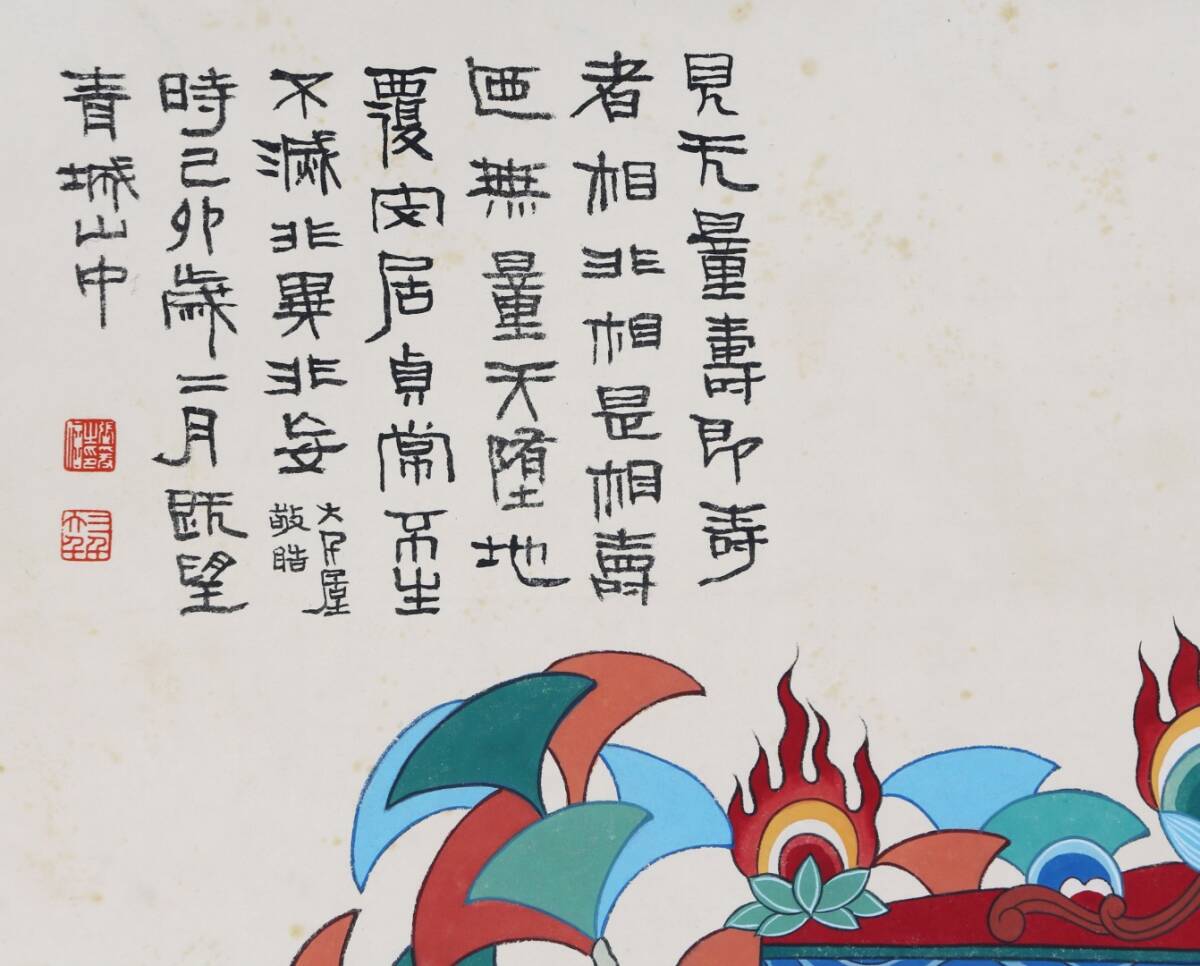 見无量壽即壽
者相非相是相壽
迺無量天墮地
覆安居貞常不生
不滅非異非妄
敬
時己卯歲二月既望
青城山中